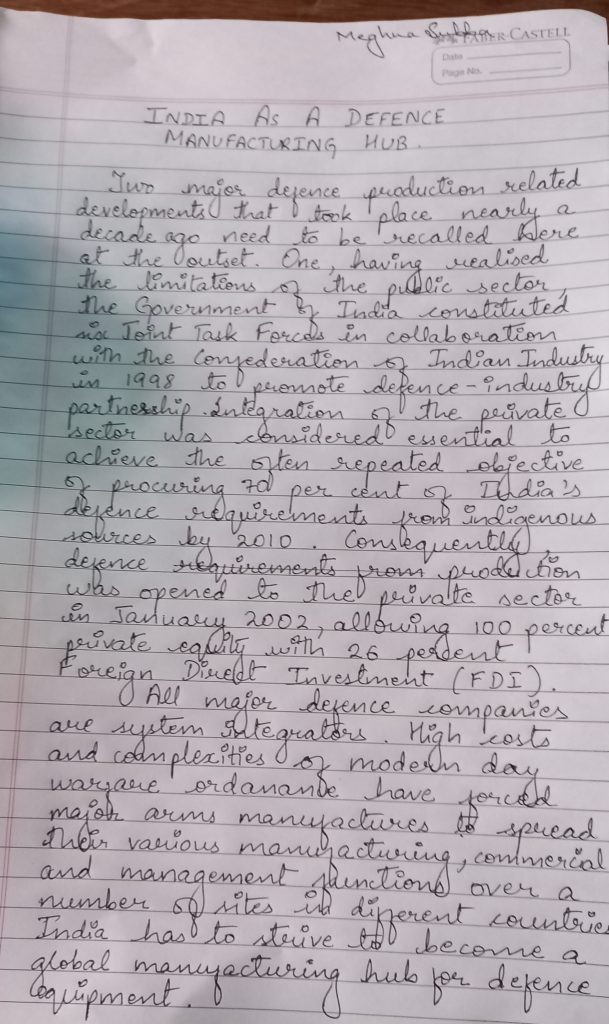 Meghna
FABER-CASTELL
Date
Page No.
INDIA AS A DEFENCE
MANUFACTURING HUB.
Two major defence production related
developments that took place nearly a
decade ago need to be recalled here
at the outset. One, having realised
the limitations of the public sector,
the Government of India constituted
six Joint Task Forces in collaboration
with the Confederation of Indian Industry
in 1998 to promote defence-industry
partnership. Integration of the private
sector was considered essential to
achieve the often repeated objective
of procuring 70 per cent of India's
defence requirements from indigenous
sources by 2010. Consequently,
defence requirements from production
was opened to the private sector
in January 2002, allowing 100 percent
private equity with 26 percent
Foreign Direct Investment (FDI).
All major defence companies
are system integrators. High costs
and complexities of modern day
warfare ordanance have forced
major arms manufactures to spread
their various manufacturing, commercial
and management functions over a
number of sites in different countries
India has to strive to become a
global manufacturing hub for defence
equipment.